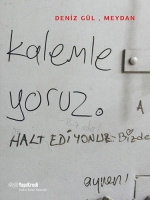 DENİZ GÜL , MEYDAN
kalemle
yoruz.
A
HALT EDİYONUZ-Bizde
aynen!
YapıKredi